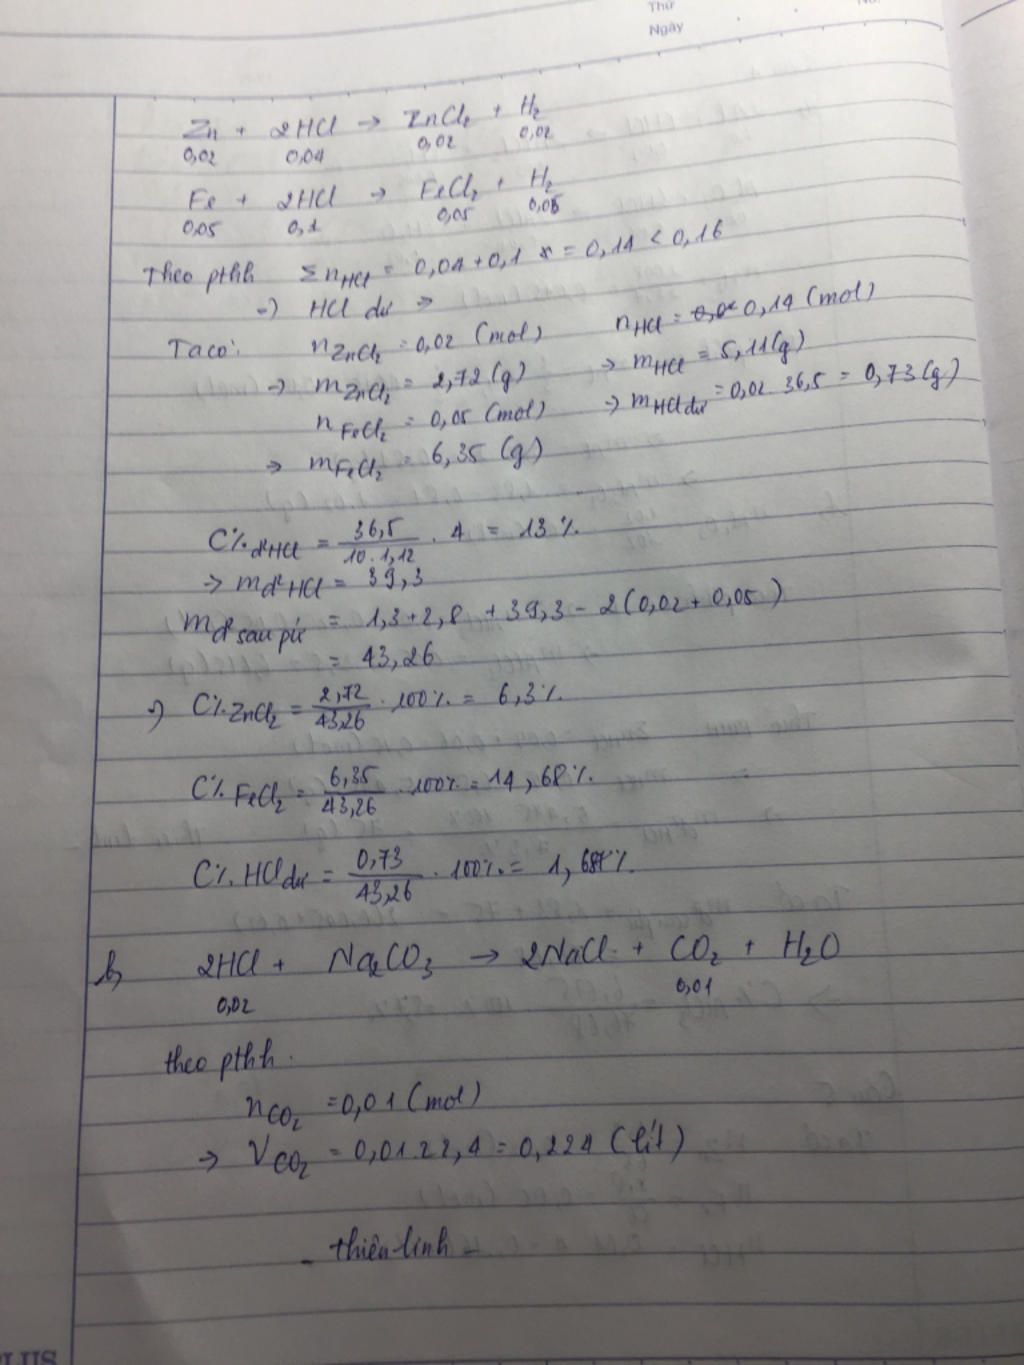 Thứ
Ngày
No.
Zn + 2HCl → ZnCl₂ + H₂
0,02 0,04 0,02 0,02
Fe + 2HCl → FeCl₂ + H₂
0,05 0,1 0,05 0,05
Theo pthh Σn HCl = 0,04 + 0,1 = 0,14 < 0,16
→ HCl dư →
Ta có: n ZnCl₂ = 0,02 (mol) n HCl = 0,14 (mol)
→ m ZnCl₂ = 2,72 (g) → m HCl = 5,11 (g)
n FeCl₂ = 0,05 (mol) → m HCl dư = 0,02 36,5 = 0,73 (g)
→ m FeCl₂ = 6,35 (g)
C% d² HCl = 36,5 / 10.1,12 . 4 = 13 %
→ m d² HCl = 39,3
m d² sau pứ = 1,3 + 2,8 + 39,3 - 2(0,02 + 0,05)
= 43,26
→ C% ZnCl₂ = 2,72 / 43,26 . 100% = 6,3%.
C% FeCl₂ = 6,35 / 43,26 . 100% = 14,68%.
C% HCl dư = 0,73 / 43,26 . 100% = 1,687%.
b, 2HCl + Na₂CO₃ → 2NaCl + CO₂ + H₂O
0,02 0,01
theo pthh.
n CO₂ = 0,01 (mol)
→ V CO₂ = 0,01.22,4 = 0,224 (lít)
- thiên linh -
PLUS